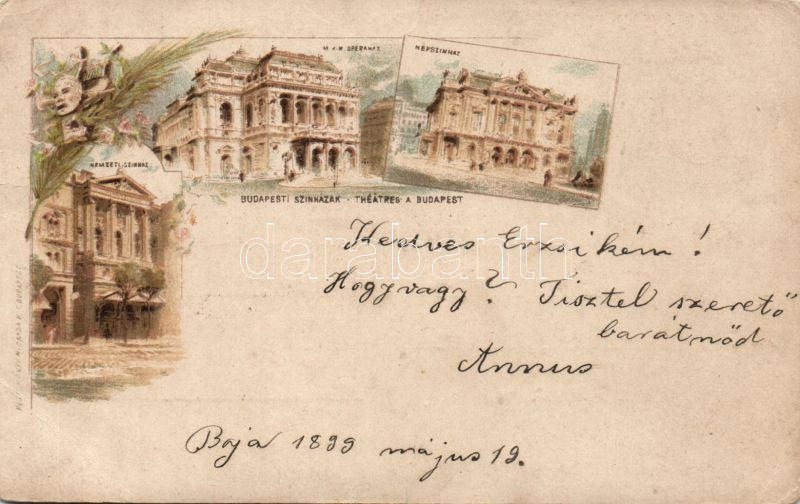 M. KIR. OPERAHÁZ
NÉPSZINHÁZ
NEMZETI SZINHÁZ
BUDAPESTI SZINHÁZAK - THÉÂTRES A BUDAPEST
Kedves Erzsikém!
Hogy vagy? Tisztel szerető
barátnőd
Annus
Baja 1899 május 19.
darabanth